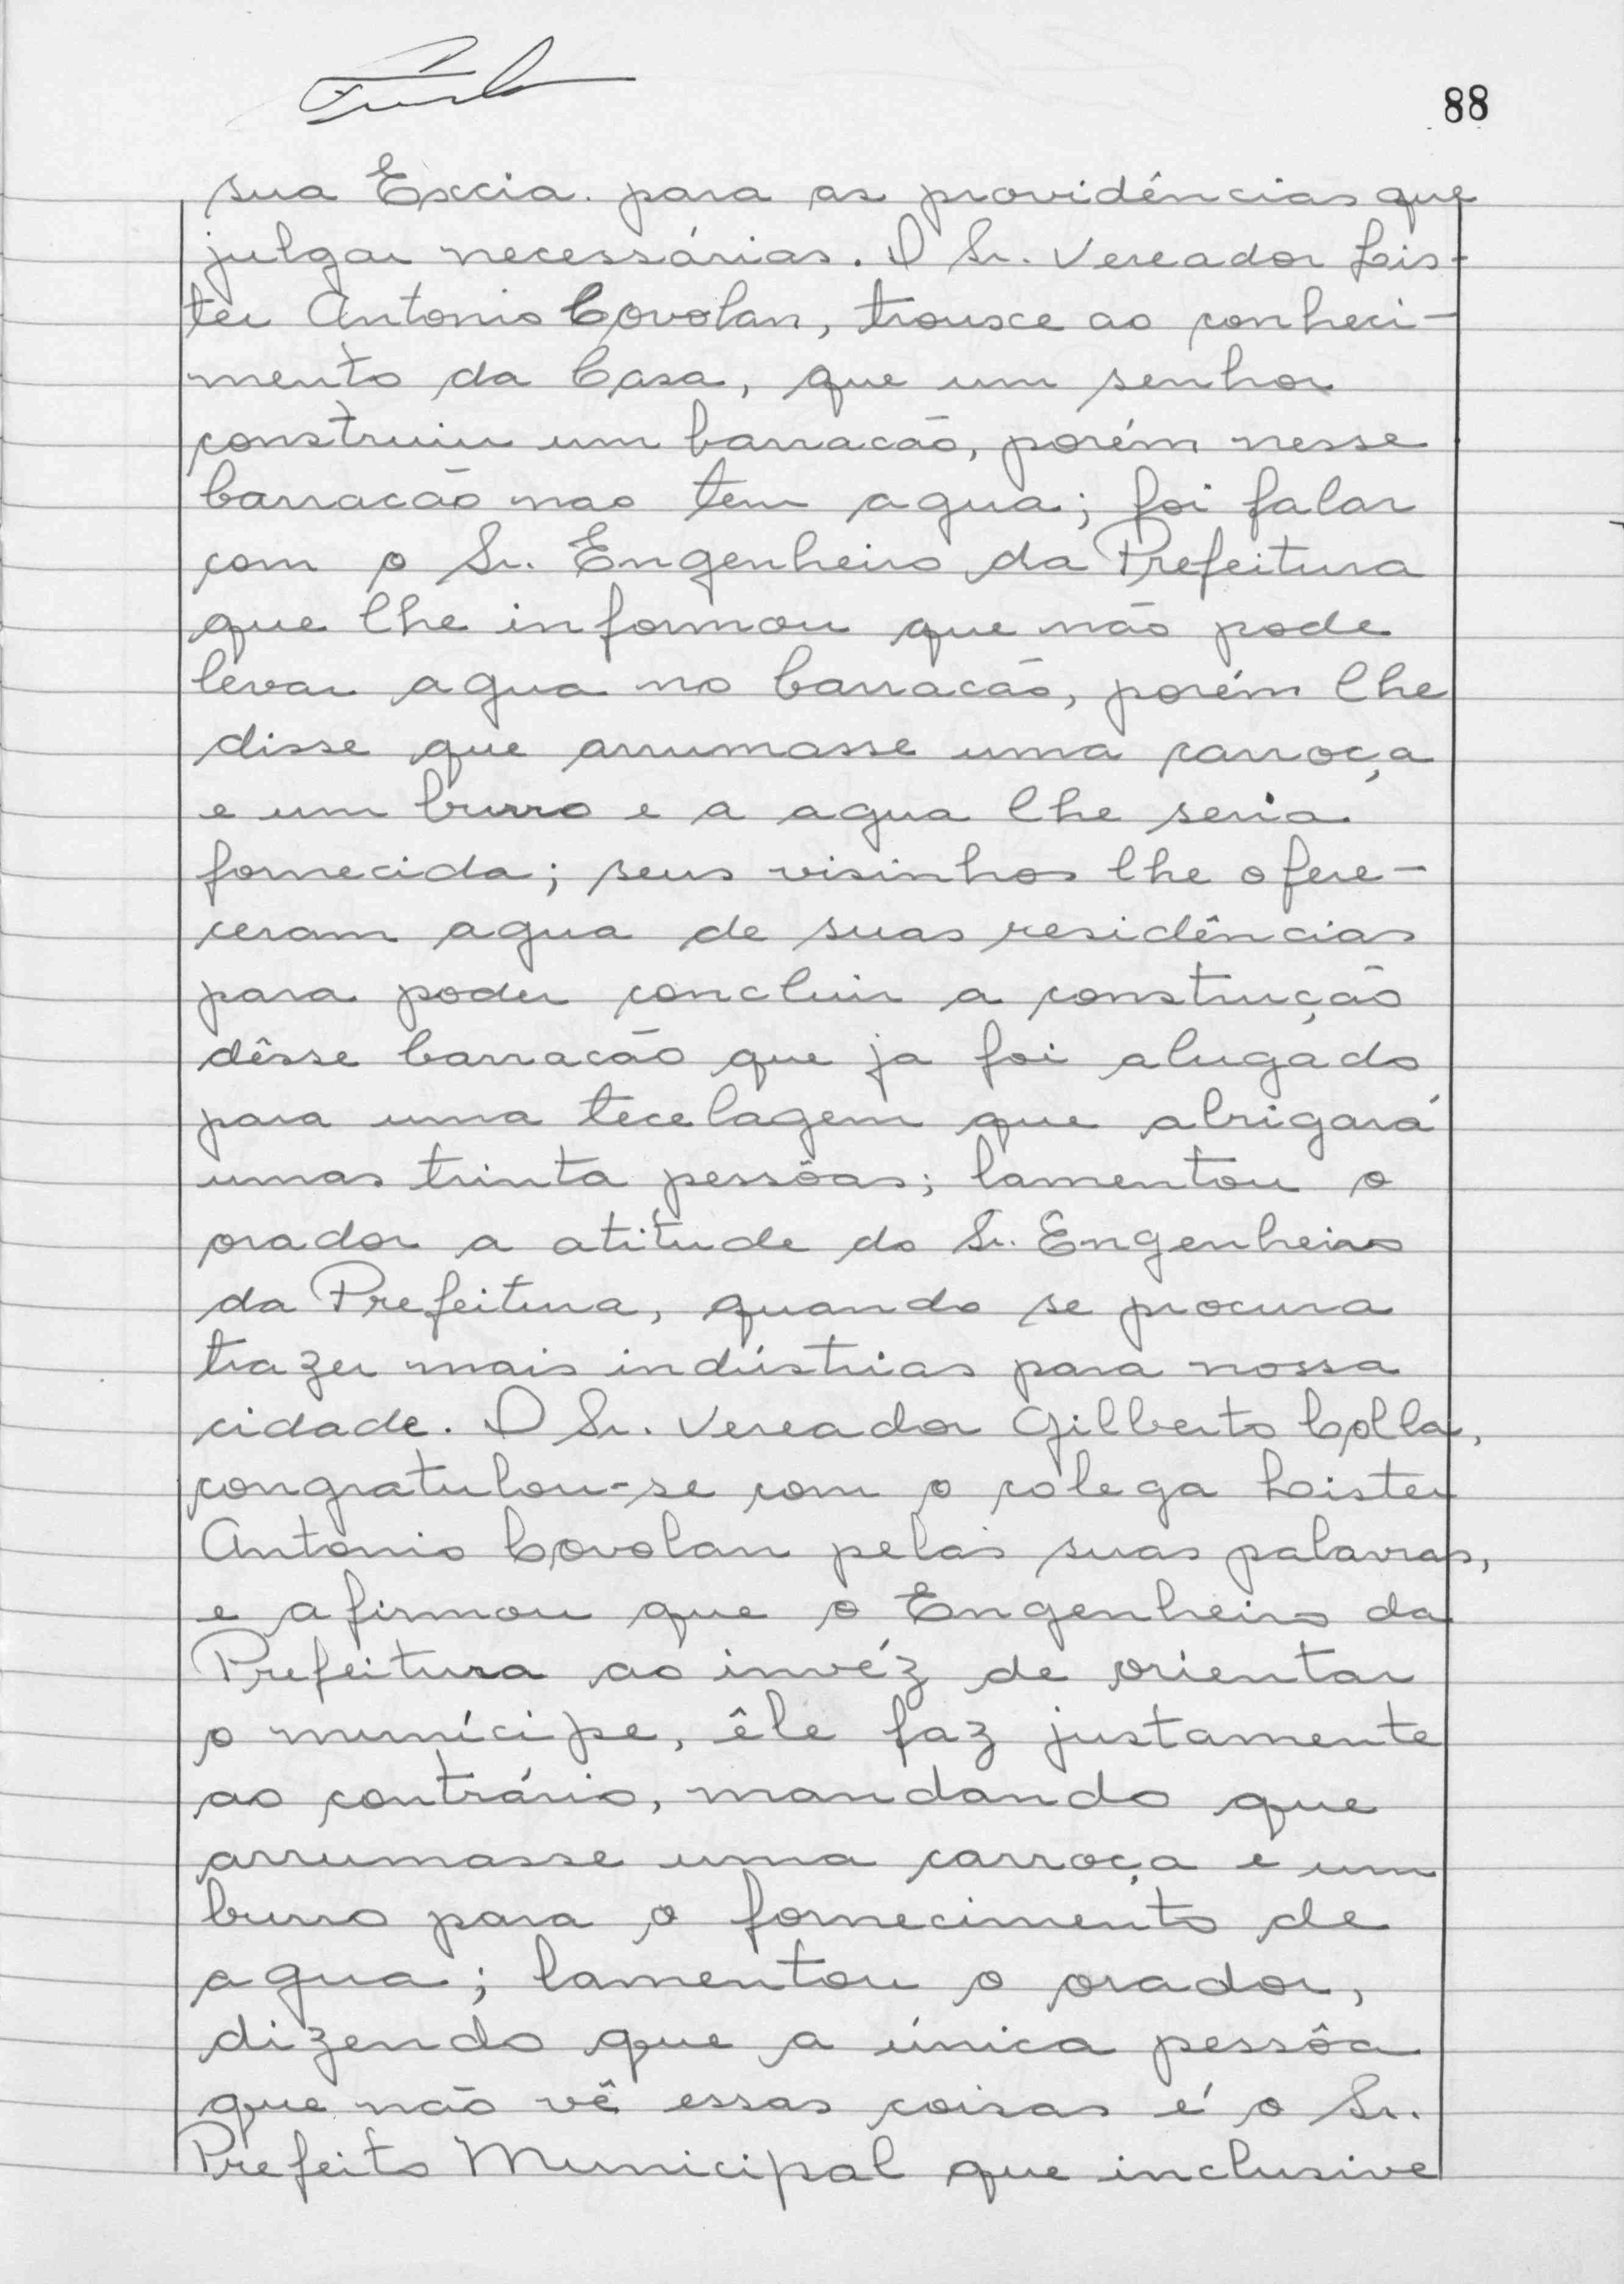 88
sua Excia. para as providências que
julgar necessárias. O Sr. Vereador Lis-
ter Antonio Covolan, trouxe ao conheci-
mento da Casa, que um senhor
construiu um barracão, porém nesse
barracão nao tem agua; foi falar
com o Sr. Engenheiro da Prefeitura
que lhe informou que não pode
levar agua no barracão, porém lhe
disse que arrumasse uma carroça
e um burro e a agua lhe seria
fornecida; seus visinhos lhe ofere-
ceram agua de suas residências
para poder concluir a construção
dêsse barracão que ja foi alugado
para uma tecelagem que abrigará
umas trinta pessôas; lamentou o
orador a atitude do Sr. Engenheiro
da Prefeitura, quando se procura
trazer mais indústrias para nossa
cidade. O Sr. Vereador Gilberto Colla,
congratulou-se com o colega Lister
Antonio Covolan pelas suas palavras,
e afirmou que o Engenheiro da
Prefeitura ao invéz de orientar
o munícipe, êle faz justamente
ao contrário, mandando que
arrumasse uma carroça e um
burro para o fornecimento de
agua; lamentou o orador,
dizendo que a única pessôa
que não vê essas coisas é o Sr.
Prefeito Municipal que inclusive